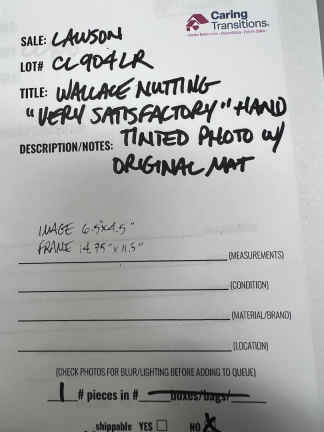 Caring
Transitions.
SALE: LAWSON
LOT# CL904LR
TITLE: WALLACE NUTTING
"VERY SATISFACTORY" HAND
DESCRIPTION/NOTES: TINTED PHOTO W/
ORIGINAL MAT
IMAGE 6.5"x4.5"
FRAME 14.75"x11.5"
(MEASUREMENTS)
(CONDITION)
(MATERIAL/BRAND)
(LOCATION)
(CHECK PHOTOS FOR BLUR/LIGHTING BEFORE ADDING TO QUEUE)
1 # pieces in # boxes/bags/
shippable YES ☐ NO X